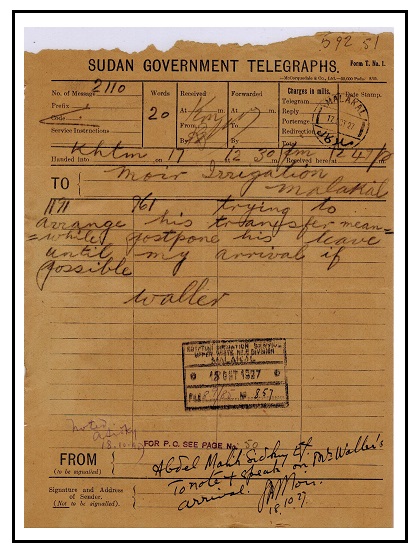 B92 51
SUDAN GOVERNMENT TELEGRAPHS.
Form T. No. 1.
No. of Message 2110
Prefix
Code
Service Instructions
Words
20
Received
At m.
From
By
Forwarded
At m.
To
By
Charges in mils.
Telegram
Reply
Porterage
Redirection
Total
Date Stamp.
MALAKAL
Handed into Khtm on 17 12 30 Received here at
TO Moir Irrigation
Malakal
1171 761 trying to
arrange his transfer mean=
=while postpone his leave
until my arrival if
possible
Waller
EGYPTIAN IRRIGATION SERVICE
UPPER WHITE NILE DIVISION
MALAKAL
18 OCT 1927
No. 857
Noted
18.10.27
FOR P.O. SEE PAGE No. 50
FROM
(to be signalled)
Abdel Malik Sidhy Ef
To note & speak on Mr Waller's
arrival.
Moir.
18.10.27
Signature and Address
of Sender.
(Not to be signalled).